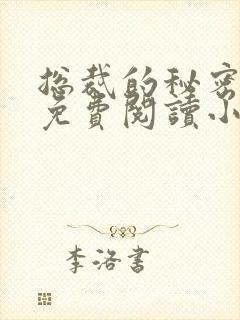 总裁的秘密
免費閱讀小
李洛書